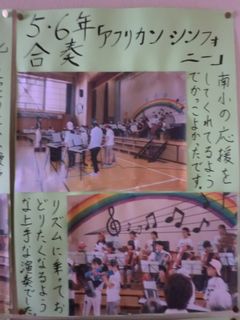 5・6年「アフリカン シンフォニー」
合奏
南小の応援を
してくれてるよう
でかっこよかったです。
リズムに乗ってお
どりたくなるよう
な上手な演奏でした